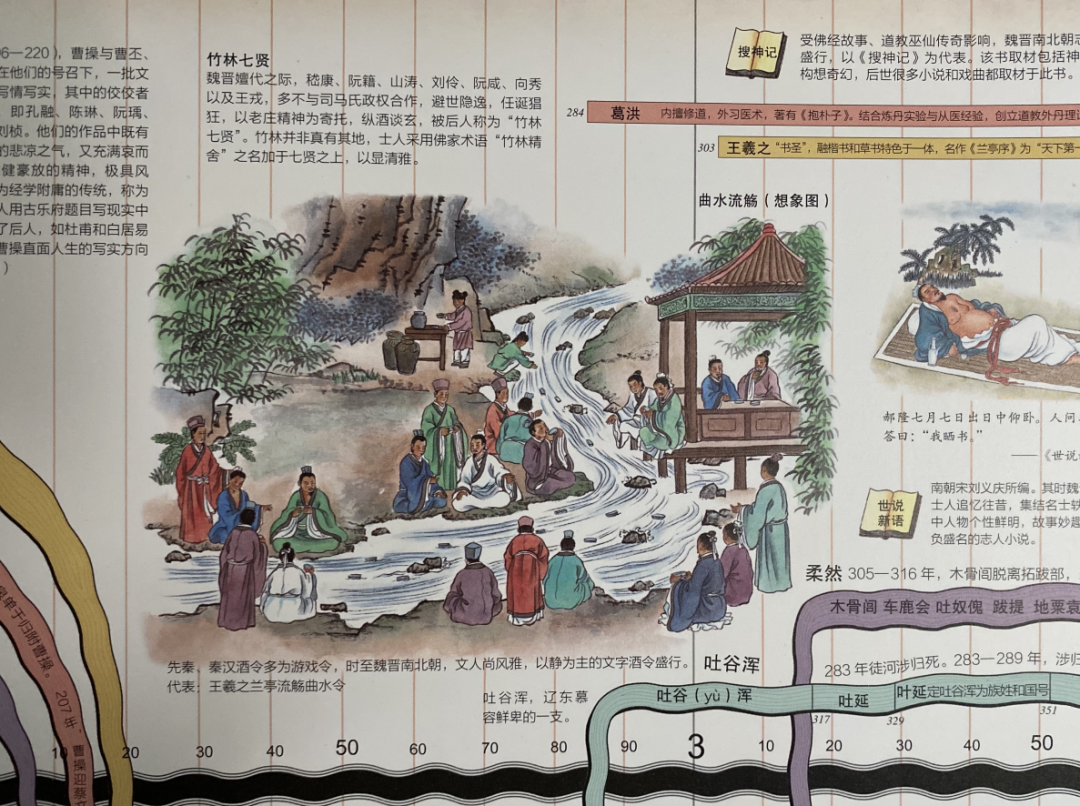 06—220），曹操与曹丕、
在他们的号召下，一批文
写情写实，其中的佼佼者
，即孔融、陈琳、阮瑀、
刘桢。他们的作品中既有
的悲凉之气，又充满哀而
健豪放的精神，极具风
为经学附庸的传统，称为
人用古乐府题目写现实中
了后人，如杜甫和白居易
曹操直面人生的写实方向
）
竹林七贤
魏晋嬗代之际，嵇康、阮籍、山涛、刘伶、阮咸、向秀
以及王戎，多不与司马氏政权合作，避世隐逸，任诞猖
狂，以老庄精神为寄托，纵酒谈玄，被后人称为“竹林
七贤”。竹林并非真有其地，士人采用佛家术语“竹林精
舍”之名加于七贤之上，以显清雅。
搜神记
受佛经故事、道教巫仙传奇影响，魏晋南北朝志
盛行，以《搜神记》为代表。该书取材包括神
构想奇幻，后世很多小说和戏曲都取材于此书。
284 葛洪 内擅修道，外习医术，著有《抱朴子》。结合炼丹实验与从医经验，创立道教外丹理
303 王羲之 “书圣”，融楷书和草书特色于一体，名作《兰亭序》为“天下第一
曲水流觞（想象图）
郝隆七月七日出日中仰卧。人问，
答曰：“我晒书。”
——《世说
世说
新语
南朝宋刘义庆所编。其时魏
士人追忆往昔，集结名士轶
中人物个性鲜明，故事妙趣
负盛名的志人小说。
柔然 305—316年，木骨闾脱离拓跋部，
木骨闾 车鹿会 吐奴傀 跋提 地粟袁
先秦、秦汉酒令多为游戏令，时至魏晋南北朝，文人尚风雅，以静为主的文字酒令盛行。
代表：王羲之兰亭流觞曲水令
吐谷浑
283年徒河涉归死。283—289年，涉归
吐谷浑，辽东慕
容鲜卑的一支。
吐谷（yù）浑 吐延 叶延定吐谷浑为族姓和国号
317 329 351
单于归附曹操。
207年，
曹操迎蔡
10 20 30 40 50 60 70 80 90 3 10 20 30 40 50